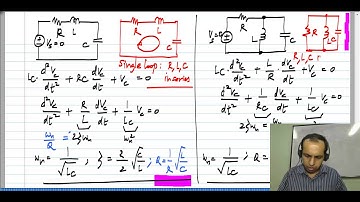 R L
Vs=0 C
R L
C
Single loop: R, L, C
in series
LC d²Vc/dt² + RC dVc/dt + Vc = 0
d²Vc/dt² + R/L dVc/dt + 1/LC Vc = 0
ωn/Q = 2ζωn ωn²
ωn = 1/√LC ; ζ = R/2 √C/L ; Q = 1/R √L/C
R
Vs=0 L C
R L C
R, L, C
LC d²Vc/dt² + L/R dVc/dt + Vc = 0
d²Vc/dt² + 1/RC dVc/dt + 1/LC Vc = 0
2ζωn
ωn = 1/√LC ; Q =